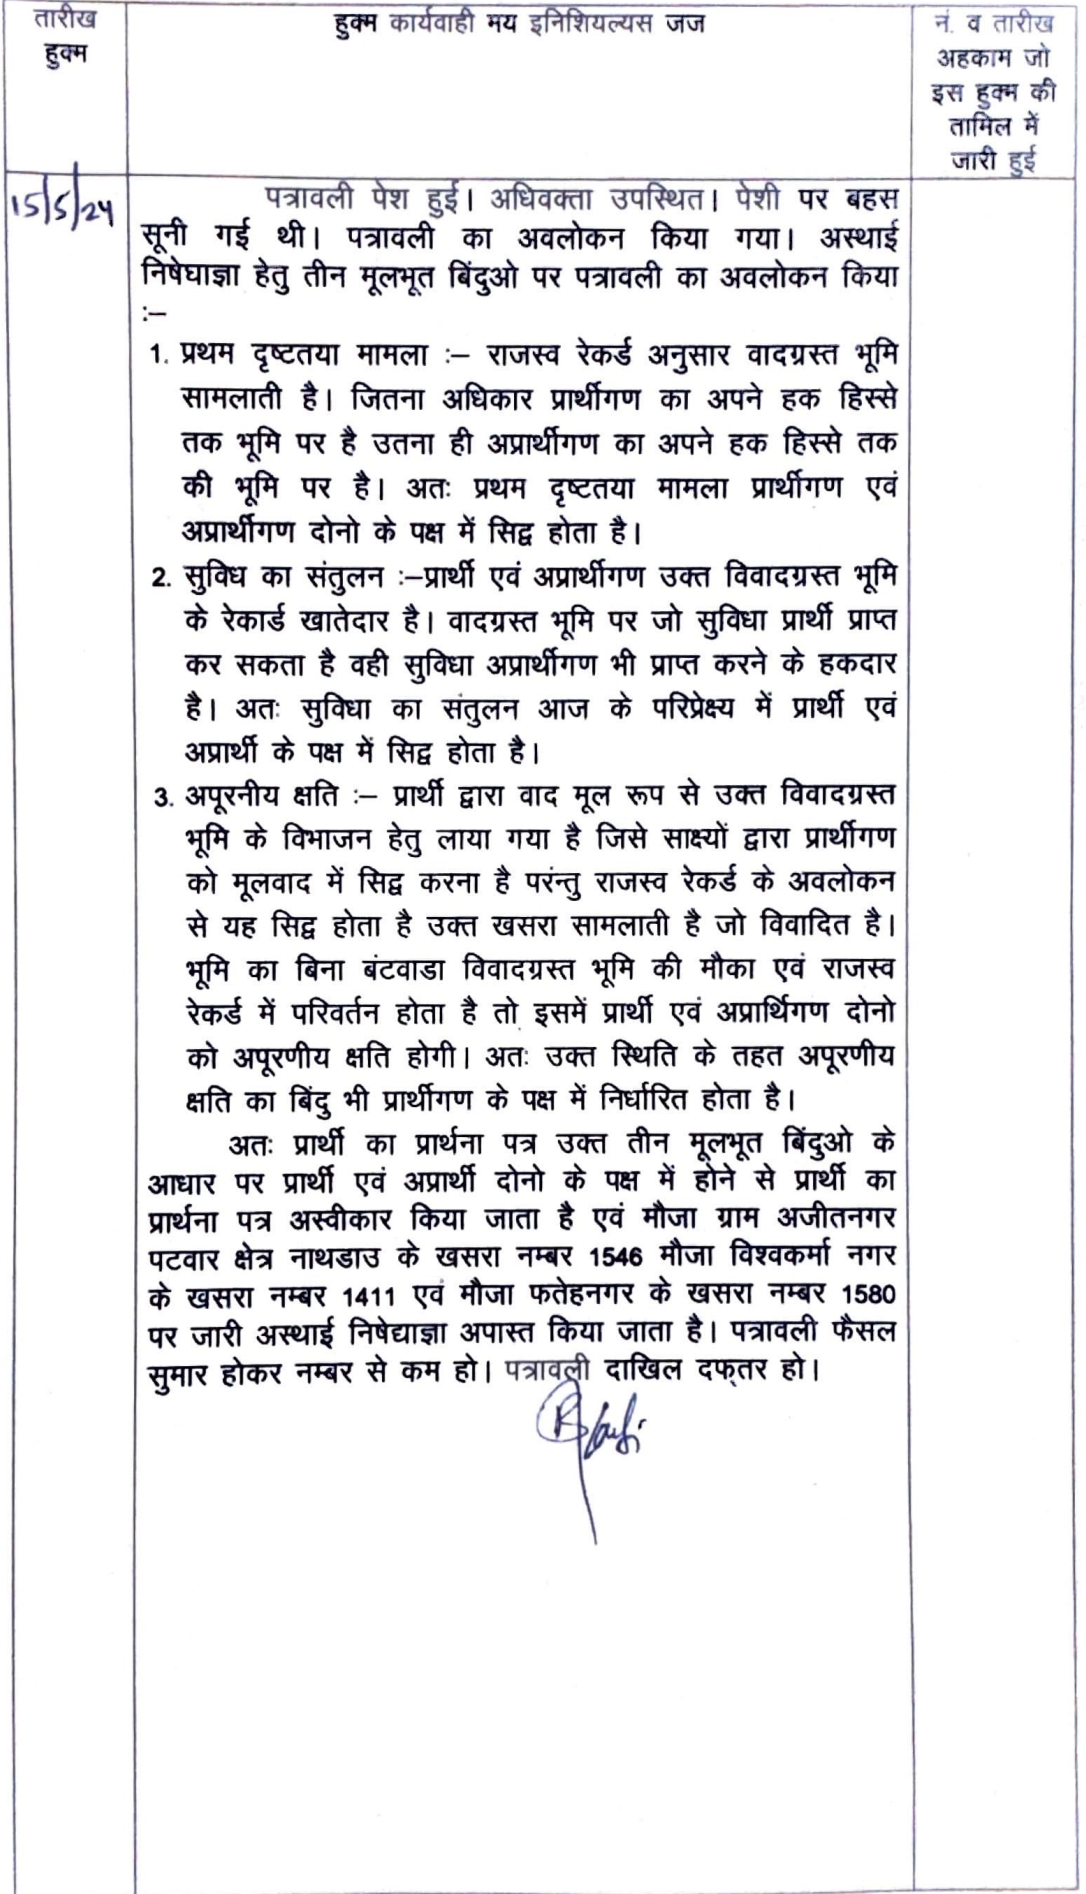 तारीख
हुक्म
हुक्म कार्यवाही मय इनिशियल्यस जज
नं. व तारीख
अहकाम जो
इस हुक्म की
तामिल में
जारी हुई
15/5/24
पत्रावली पेश हुई। अधिवक्ता उपस्थित। पेशी पर बहस
सूनी गई थी। पत्रावली का अवलोकन किया गया। अस्थाई
निषेघाज्ञा हेतु तीन मूलभूत बिंदुओ पर पत्रावली का अवलोकन किया
:–
1. प्रथम दृष्टतया मामला :– राजस्व रेकर्ड अनुसार वादग्रस्त भूमि
सामलाती है। जितना अधिकार प्रार्थीगण का अपने हक हिस्से
तक भूमि पर है उतना ही अप्रार्थीगण का अपने हक हिस्से तक
की भूमि पर है। अतः प्रथम दृष्टतया मामला प्रार्थीगण एवं
अप्रार्थीगण दोनो के पक्ष में सिद्व होता है।
2. सुविध का संतुलन :–प्रार्थी एवं अप्रार्थीगण उक्त विवादग्रस्त भूमि
के रेकार्ड खातेदार है। वादग्रस्त भूमि पर जो सुविधा प्रार्थी प्राप्त
कर सकता है वही सुविधा अप्रार्थीगण भी प्राप्त करने के हकदार
है। अतः सुविधा का संतुलन आज के परिप्रेक्ष्य में प्रार्थी एवं
अप्रार्थी के पक्ष में सिद्व होता है।
3. अपूरनीय क्षति :– प्रार्थी द्वारा वाद मूल रूप से उक्त विवादग्रस्त
भूमि के विभाजन हेतु लाया गया है जिसे साक्ष्यों द्वारा प्रार्थीगण
को मूलवाद में सिद्व करना है परंन्तु राजस्व रेकर्ड के अवलोकन
से यह सिद्व होता है उक्त खसरा सामलाती है जो विवादित है।
भूमि का बिना बंटवाडा विवादग्रस्त भूमि की मौका एवं राजस्व
रेकर्ड में परिवर्तन होता है तो इसमें प्रार्थी एवं अप्रार्थिगण दोनो
को अपूरणीय क्षति होगी। अतः उक्त स्थिति के तहत अपूरणीय
क्षति का बिंदु भी प्रार्थीगण के पक्ष में निर्धारित होता है।
अतः प्रार्थी का प्रार्थना पत्र उक्त तीन मूलभूत बिंदुओ के
आधार पर प्रार्थी एवं अप्रार्थी दोनो के पक्ष में होने से प्रार्थी का
प्रार्थना पत्र अस्वीकार किया जाता है एवं मौजा ग्राम अजीतनगर
पटवार क्षेत्र नाथडाउ के खसरा नम्बर 1546 मौजा विश्वकर्मा नगर
के खसरा नम्बर 1411 एवं मौजा फतेहनगर के खसरा नम्बर 1580
पर जारी अस्थाई निषेद्याज्ञा अपास्त किया जाता है। पत्रावली फैसल
सुमार होकर नम्बर से कम हो। पत्रावली दाखिल दफ्तर हो।